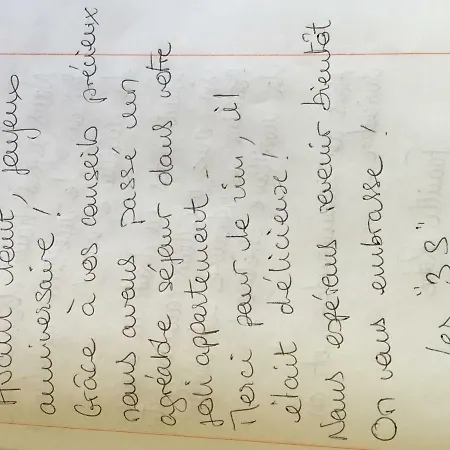 Avant tout, joyeux
anniversaire!
Grâce à vos conseils précieux
nous avons passé un
agréable séjour dans votre
joli appartement -
Merci pour le vin, il
était délicieuse!
Nous espérons revenir bientôt
On vous embrasse!
Les "3 S"